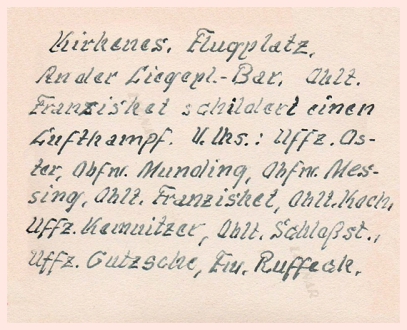 Kirkenes. Flugplatz.
An der Liegepl.-Bar. Oblt.
Franzisket schildert einen
Luftkampf. V.lks.: Uffz. Os-
ter, Obfw. Munding, Obfw. Mes-
sing, Oblt. Franzisket, Oblt. Koch,
Uffz. Kemnitzer, Oblt. Schloßst.,
Uffz. Gutzsche, Fw. Ruffeck.